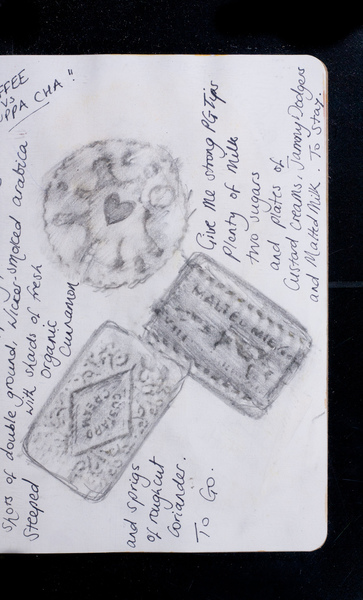 COFFEE
PPA CHA."
Shots of double ground, Wicker-smoked arabica
steeped with shards of fresh
organic
cinnamon
and sprigs
of rough cut
coriander.
To Go.
CUSTARD
CREAM
MALTED MILK
Give me strong PG Tips
Plenty of Milk
two sugars
and plates of
Custard creams, Jammy Dodgers
and Malted Milk. To Stay.